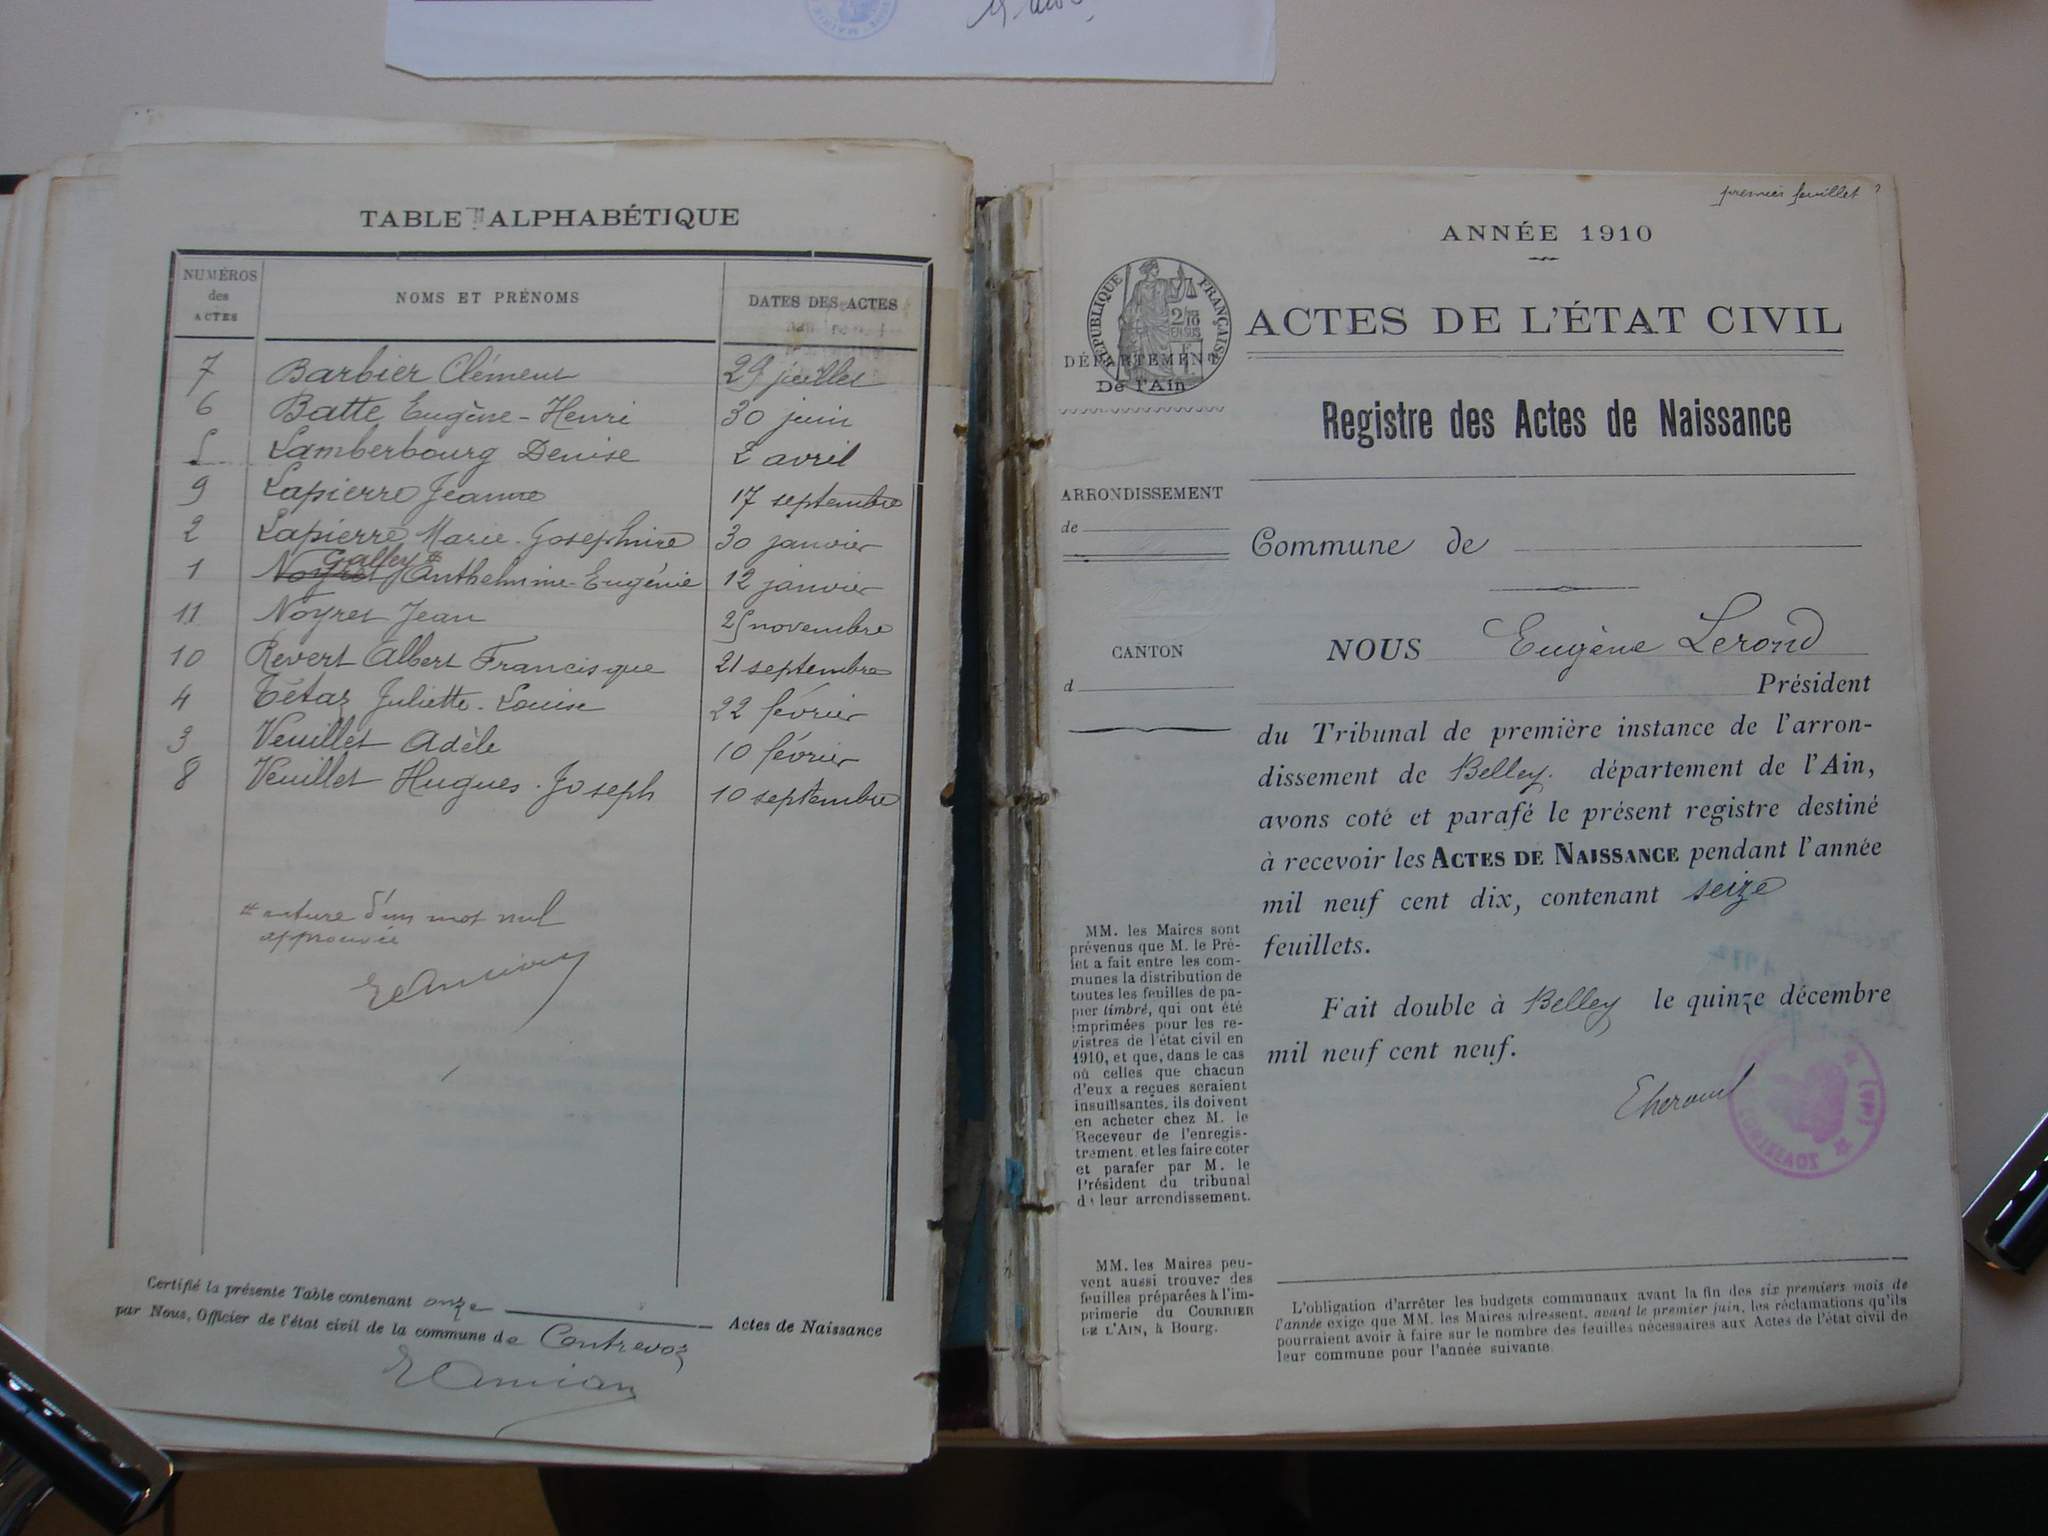 TABLE ALPHABÉTIQUE
NUMÉROS
des
ACTES
NOMS ET PRÉNOMS
DATES DES ACTES
7 Barbier Clément 29 juillet
6 Batte Eugène-Henri 30 juin
5 Lamberbourg Denise 2 avril
9 Lapierre Jeanne 17 septembre
2 Lapierre Marie-Joséphine 30 janvier
Galley #
1 Noyret Anthelmine-Eugénie 12 janvier
11 Noyret Jean 25 novembre
10 Revert Albert Francisque 21 septembre
4 Tétaz Juliette-Louise 22 février
3 Veuillet Adèle 10 février
8 Veuillet Hugues-Joseph 10 septembre
# rature d'un mot nul
approuvée
Certifié la présente Table contenant onze Actes de Naissance
par Nous, Officier de l'état civil de la commune de Contrevoz
premier feuillet
ANNÉE 1910
RÉPUBLIQUE FRANÇAISE
2/10
EN SUS
ACTES DE L'ÉTAT CIVIL
DÉPARTEMENT
De l'Ain
Registre des Actes de Naissance
ARRONDISSEMENT
de
Commune de
CANTON
d
NOUS Eugène Lerond
Président
du Tribunal de première instance de l'arron-
dissement de Belley. département de l'Ain,
avons coté et parafé le présent registre destiné
à recevoir les ACTES DE NAISSANCE pendant l'année
mil neuf cent dix, contenant seize
feuillets.
Fait double à Belley le quinze décembre
mil neuf cent neuf.
MM. les Maires sont
prévenus que M. le Pré-
fet a fait entre les com-
munes la distribution de
toutes les feuilles de pa-
pier timbré, qui ont été
imprimées pour les re-
gistres de l'état civil en
1910, et que, dans le cas
où celles que chacun
d'eux a reçues seraient
insuffisantes, ils doivent
en acheter chez M. le
Receveur de l'enregis-
trement et les faire coter
et parafer par M. le
Président du tribunal
de leur arrondissement.
MM. les Maires peu-
vent aussi trouver des
feuilles préparées à l'im-
primerie du COURRIER
DE L'AIN, à Bourg.
L'obligation d'arrêter les budgets communaux avant la fin des six premiers mois de
l'année exige que MM. les Maires adressent, avant le premier juin, les réclamations qu'ils
pourraient avoir à faire sur le nombre des feuilles nécessaires aux Actes de l'état civil de
leur commune pour l'année suivante.